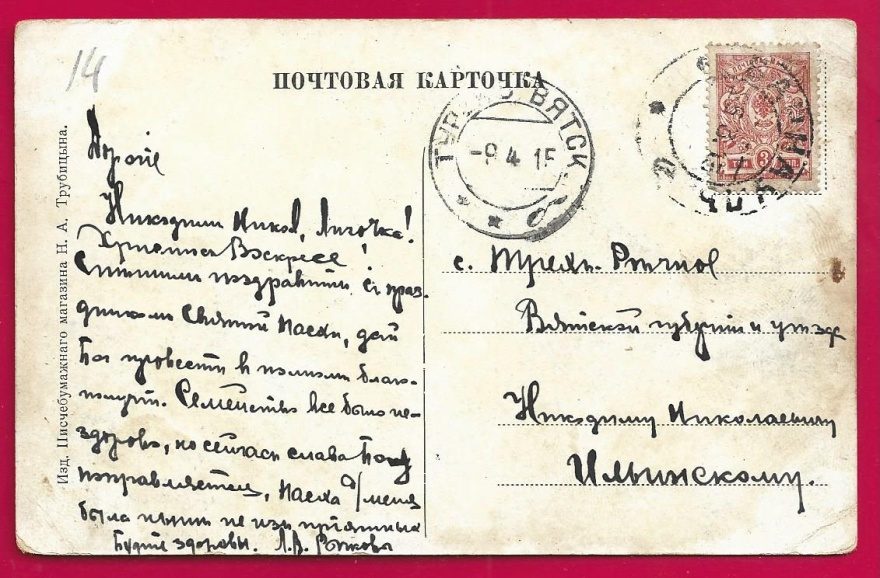 14
ПОЧТОВАЯ КАРТОЧКА
ВЯТСК.
-9 4 15
3
Изд. Писчебумажнаго магазина Н. А. Трубицына.
Дорогіе
Никодимъ Никол, !
Христосъ Воскресе!
Спѣшимъ поздравить съ праз-
дникомъ Святой Пасхи, дай
Богъ провести въ полномъ благо-
получіи. Семейство все было не-
здорово, но сейчасъ слава Богу
поправляется, Пасха у меня
была нынѣ не изъ пріятныхъ
Будте здоровы. Л.В.
с.
Вятской губерніи и уѣзда
Никодиму Николаевичу
Ильинскому.